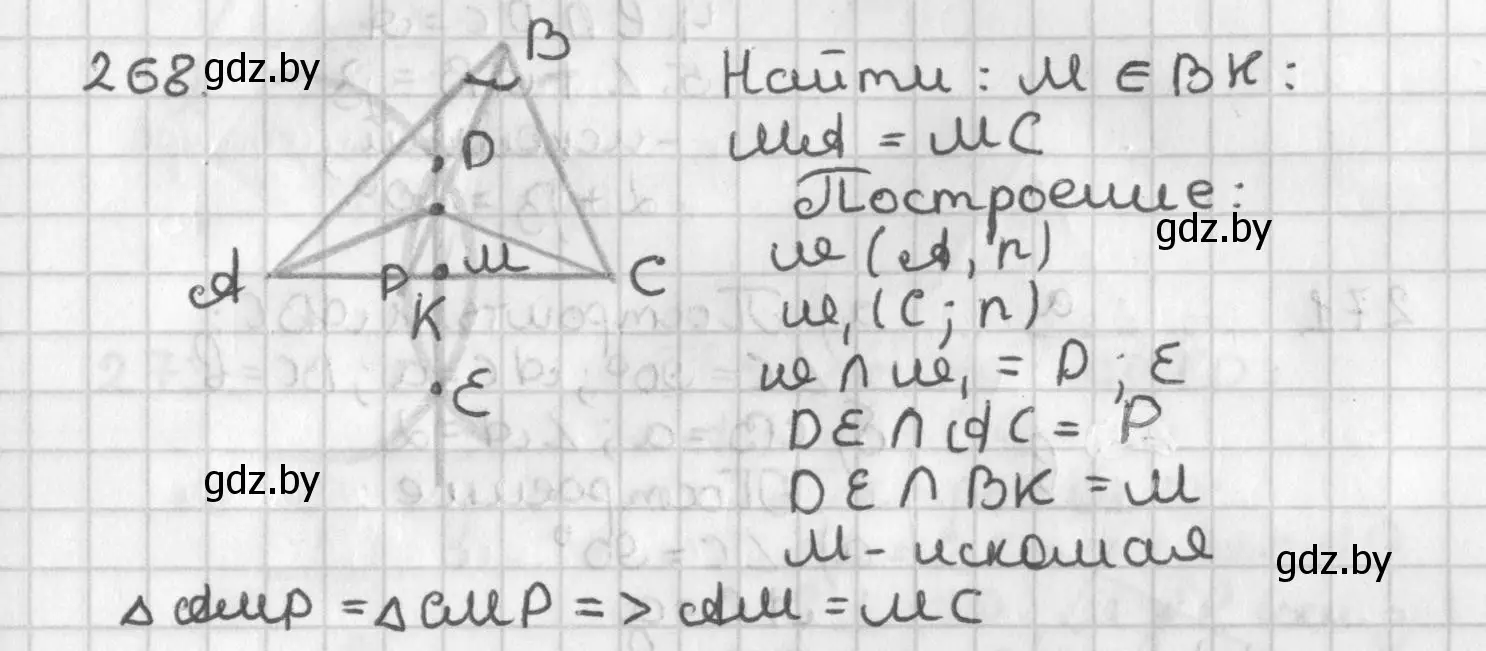 268. gdz.by
B
D
A
P
M
C
K
E
gdz.by
Найти: M ∈ BK:
MA = MC
Построение:
gdz.by
ω (A, r)
ω₁ (C; r)
ω ∩ ω₁ = D; E
DE ∩ AC = P
DE ∩ BK = M
M - искомая
gdz.by
Δ AMP = Δ CMP => AM = MC